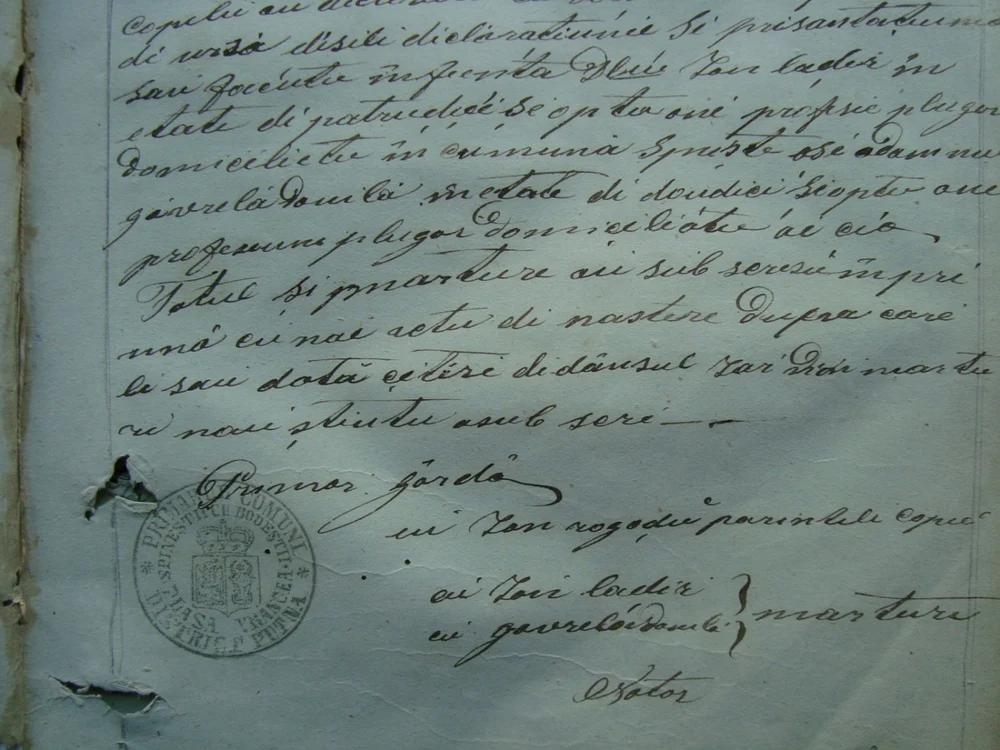 copilu au
di ursă disili diclarațiunie și prisantațiuna
sau facutu înfeenta Dlui Ion ladir în
etate di patrudici și optu ani profsie plugar
domiciliatu în cumuna Spineste
gavrelă danilă în etate di doudici și optu ani
profesiune plugar domiciliatu ai cia
Totul și marture au sub scresu împri
ună cu noi actu di nastere dupra care
li sau dotă cetire didânsul Iar Din martu
ri nau știutu asub scri
Primar gârdă
eu Ion rogojiu parintele copil
eu Ion ladir
eu gavrelă danilă } marturi
Notar
* PRIMARIA COMUNI * SPINESTII CU BODESTII
PLASA VRANCEA
DISTRIC. PUTNA